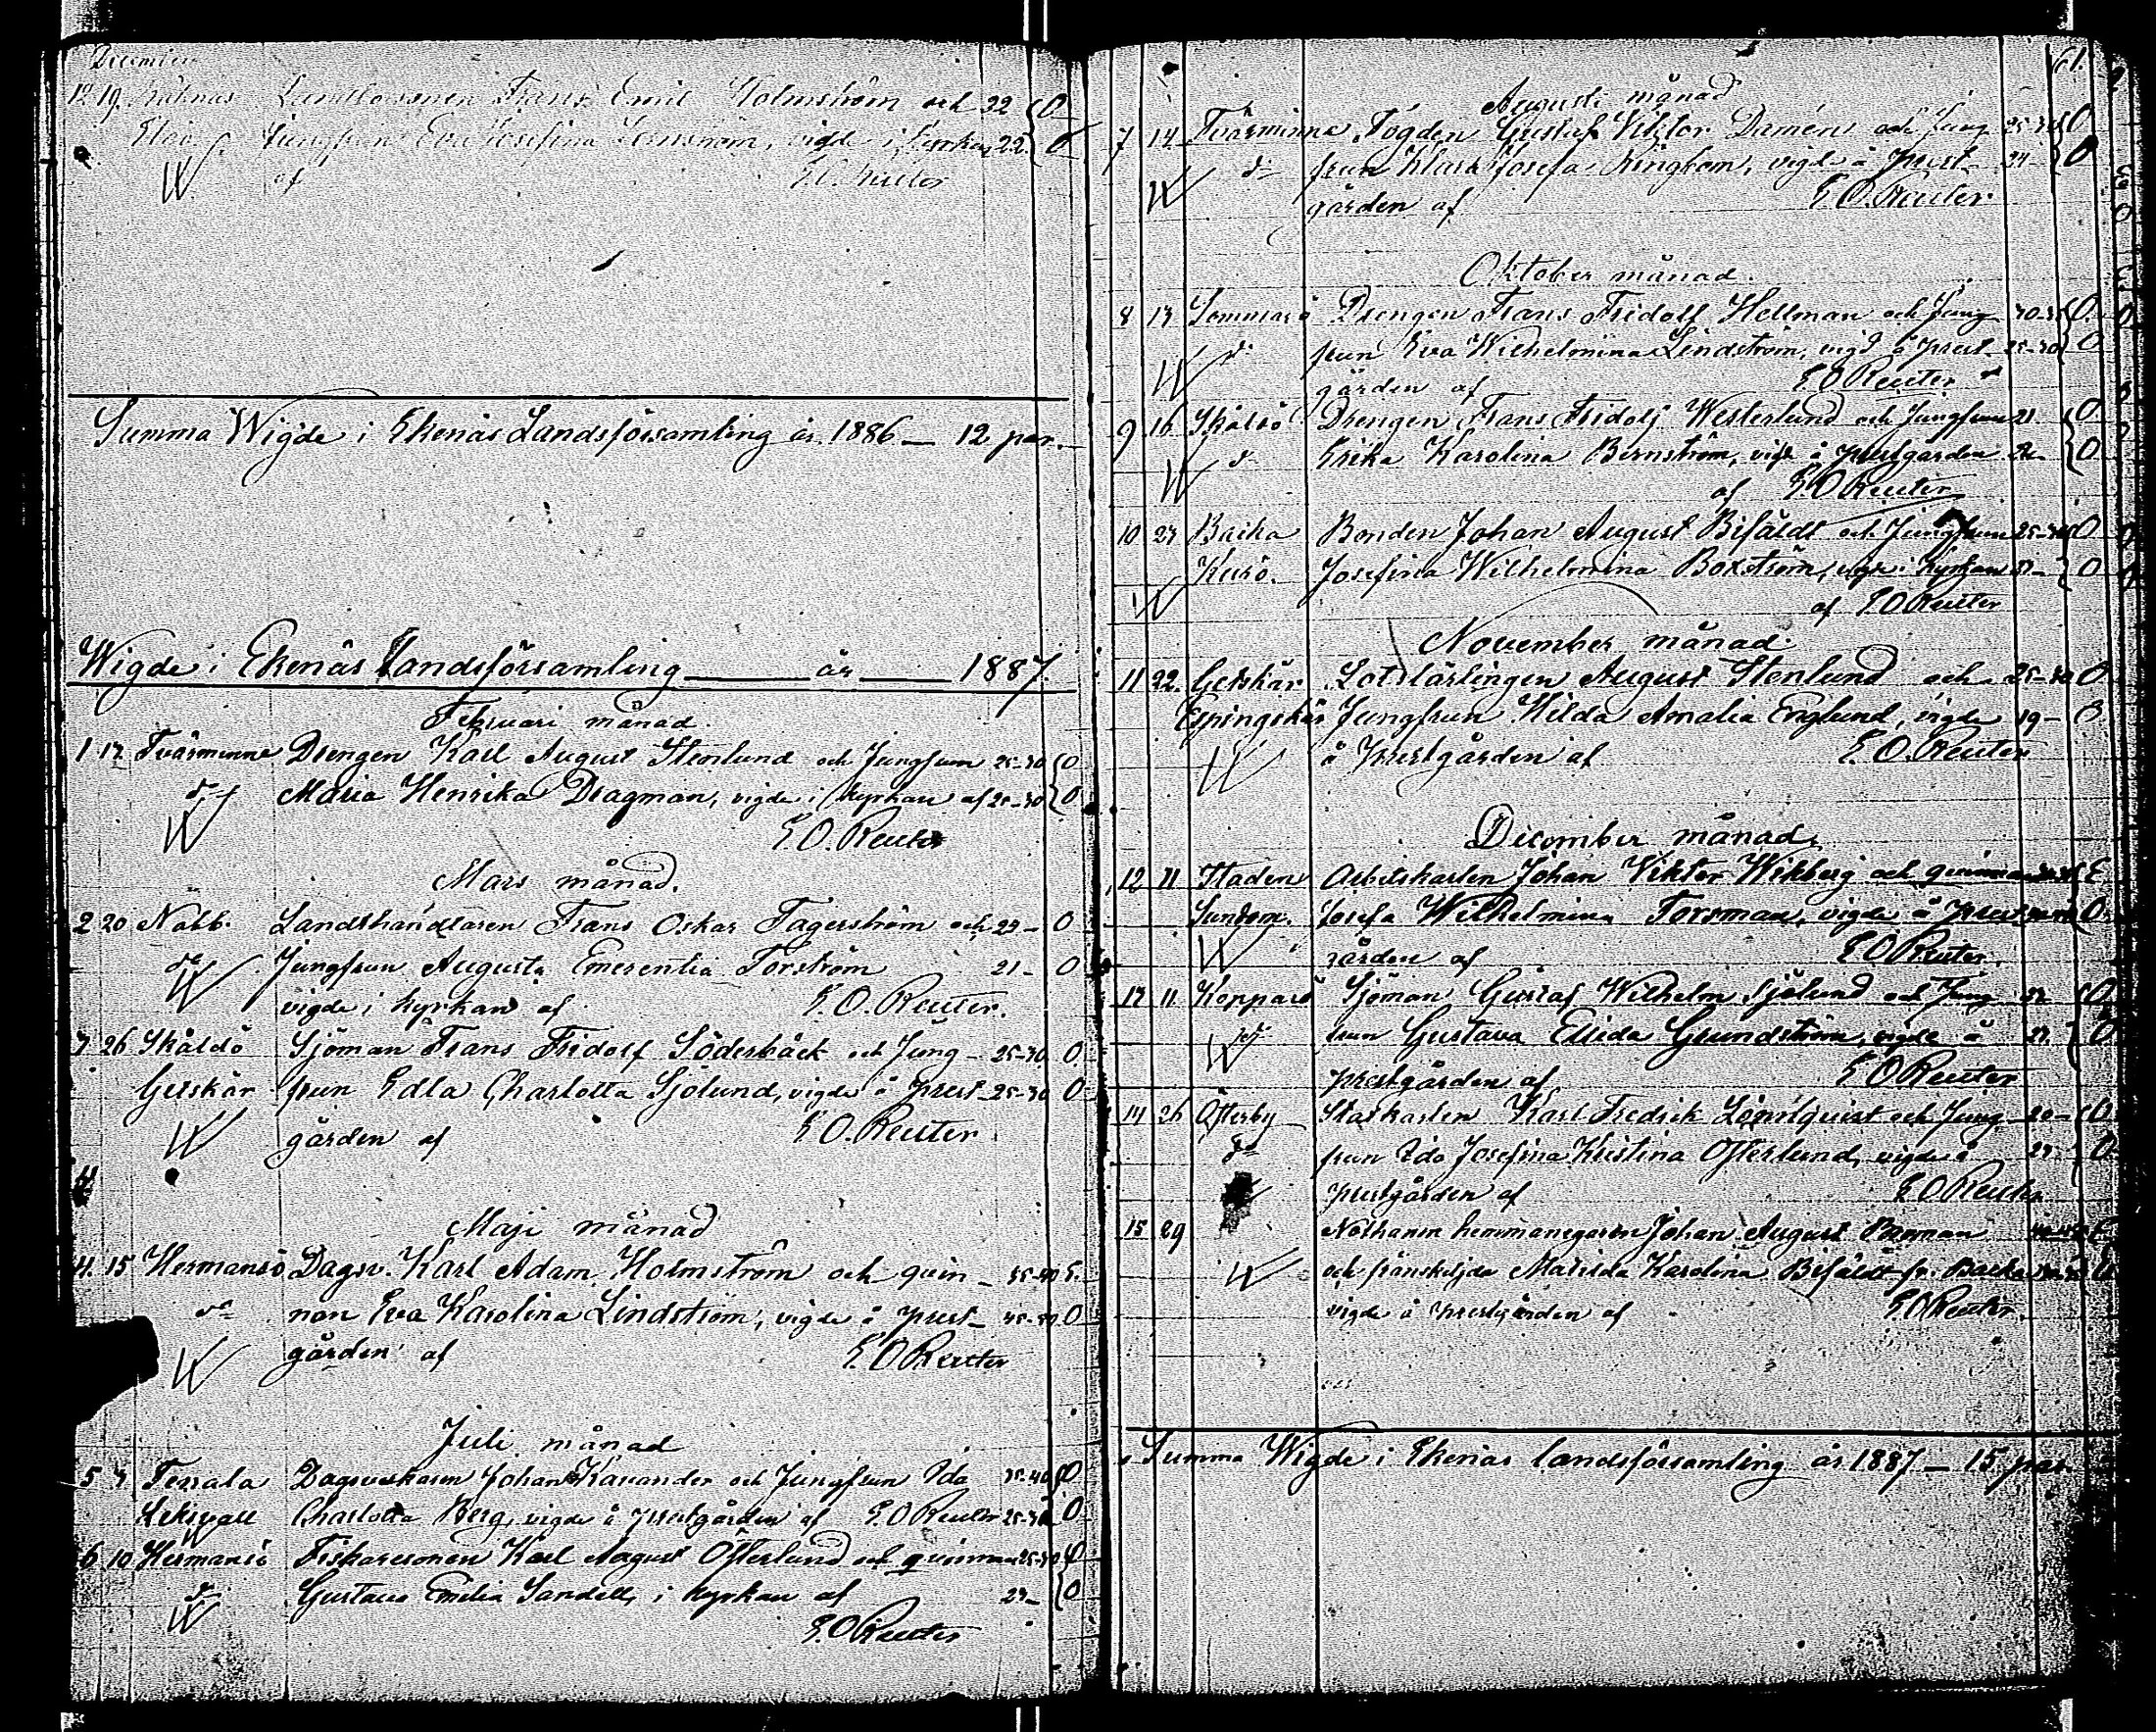 December
12 19. Landbosonen Frans Emil Holmström och 22 O
Jungfrun Eva Josefina vigde i kyrkan 22. O
W af E. O. Reuter
Summa Wigde i Ekenäs Landsförsamling år 1886 — 12 par.
Wigde i Ekenäs Landsförsamling år 1887.
Februari månad.
1 12 Tvärminne Drengen Karl August Stenlund och Jungfrun 25-30 O
d:o Maria Henrika Dragman, vigde i kyrkan af 25-30 O
W E. O. Reuter
Mars månad.
2 20 Nabb. Landthandlaren Frans Oskar Fagerström och 23 – O
d:o Jungfrun Augusta Emerentia Forström 21 – O
W vigde i kyrkan af E. O. Reuter.
3 26 Skåldö Sjöman Frans Fridolf Söderbäck och Jung– 25-30 O
Getskär frun Edla Charlotta Sjölund, vigde å prest– 25-30 O
W gården af E. O. Reuter
Maji månad
4. 15 Hermansö Dagsv. Karl Adam Holmström och qvin– 35-40 E.
d:o nan Eva Karolina Lindström, vigde å prest– 45-50 O
W gården af E. O Reuter
Juli månad
5 3 Terrala Dagsverkaren Johan Kavander och Jungfrun Ida 35-40 O
Leksvall Charlotta Berg, vigde å prestgården af E. O Reuter 25-30 O
6 10 Hermansö Fiskaresonen Karl August Österlund och qvinnan 25-30 O
d:o Gustava Emilia Sandell, i kyrkan af 23 – O
W E. O Reuter
61.
Augusti månad
7 14 Tvärminne Fogden Gustaf Viktor Damén och Jung– 25-30 O
d:o frun Klara Josefa Ringbom, vigde å prest– 24 – O
W gården af E. O. Reuter
Oktober månad.
8 13 Sommarö Drengen Frans Fridolf Hellman och Jung– 30-35 O.
d:o frun Eva Wilhelmina Lindström, vigd å prest– 25-30 O
W gården af E O Reuter
9 16 Skåldö Drengen Frans Fridolf Westerlund och Jungfrun 21. O.
d:o Erika Karolina Bernström, vigde å prestgården O
W af E. O Reuter
10 23 Backa Bonden Johan August Bifäldt och Jungfrun 25-30 O
Kurö. Josefina Wilhelmina Boxström, vigde i kyrkan O
W af E. O Reuter
November månad.
11 22. Getskär Lotslärlingen August Stenlund och 25-30 O
Espingskär Jungfrun Hilda Amalia Englund, vigde 19 – O
W å prestgården af E. O. Reuter
December månad.
12 11 Staden Arbetskarlen Johan Viktor Wikberg och qvinnan E
Sundom. Josefa Wilhelmina Forsman, vigde å prest O
W gården af E O Reuter.
13 11. Kopparö Sjöman Gustaf Wilhelm Sjölund och Jung– O
d:o frun Gustava Elida Grundström, vigde å O
W prestgården af E O Reuter
14 26 Österby Statkarlen Karl Fredrik Lönnqvist och Jung– 20 – O
d:o frun Ida Josefina Kristina Österlund, vigde å 23 O
prestgården af E O Reuter
15 29 hemmanegaren Johan August E
W och frånskiljda Matilda Karolina Bifäldt fr. Backa
vigde å prestgården af E. O Reuter.
Summa Wigde i Ekenäs landsförsamling år 1887 — 15 par